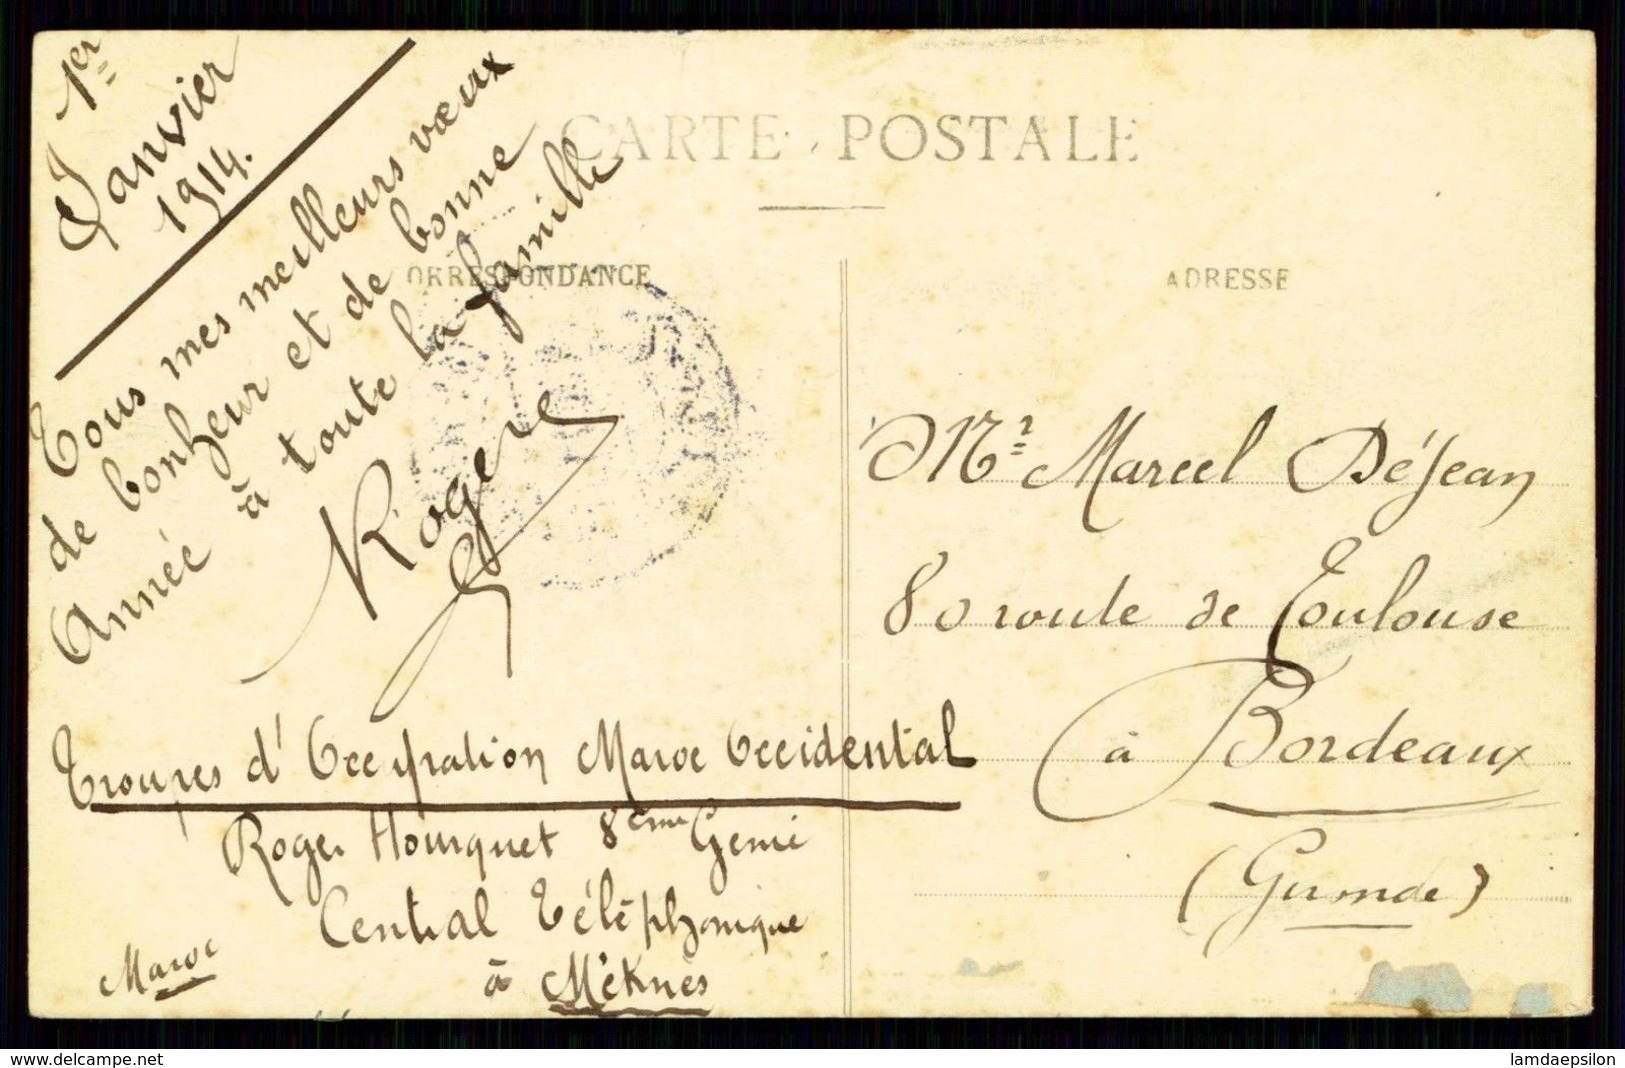 CARTE POSTALE
ORRESPONDANCE
ADRESSE
1er
Janvier
1914.
Tous mes meilleurs vœux
de bonheur et de bonne
Année à toute la famille
Roger
Troupes d'Occupation Maroc Occidental
Roger Hourquet 8ème Genie
Central Téléphonique
à Mèknès
Maroc
Mr Marcel Déjean
80 route de Toulouse
à Bordeaux
(Gironde)
www.delcampe.net
lamdaepsilon